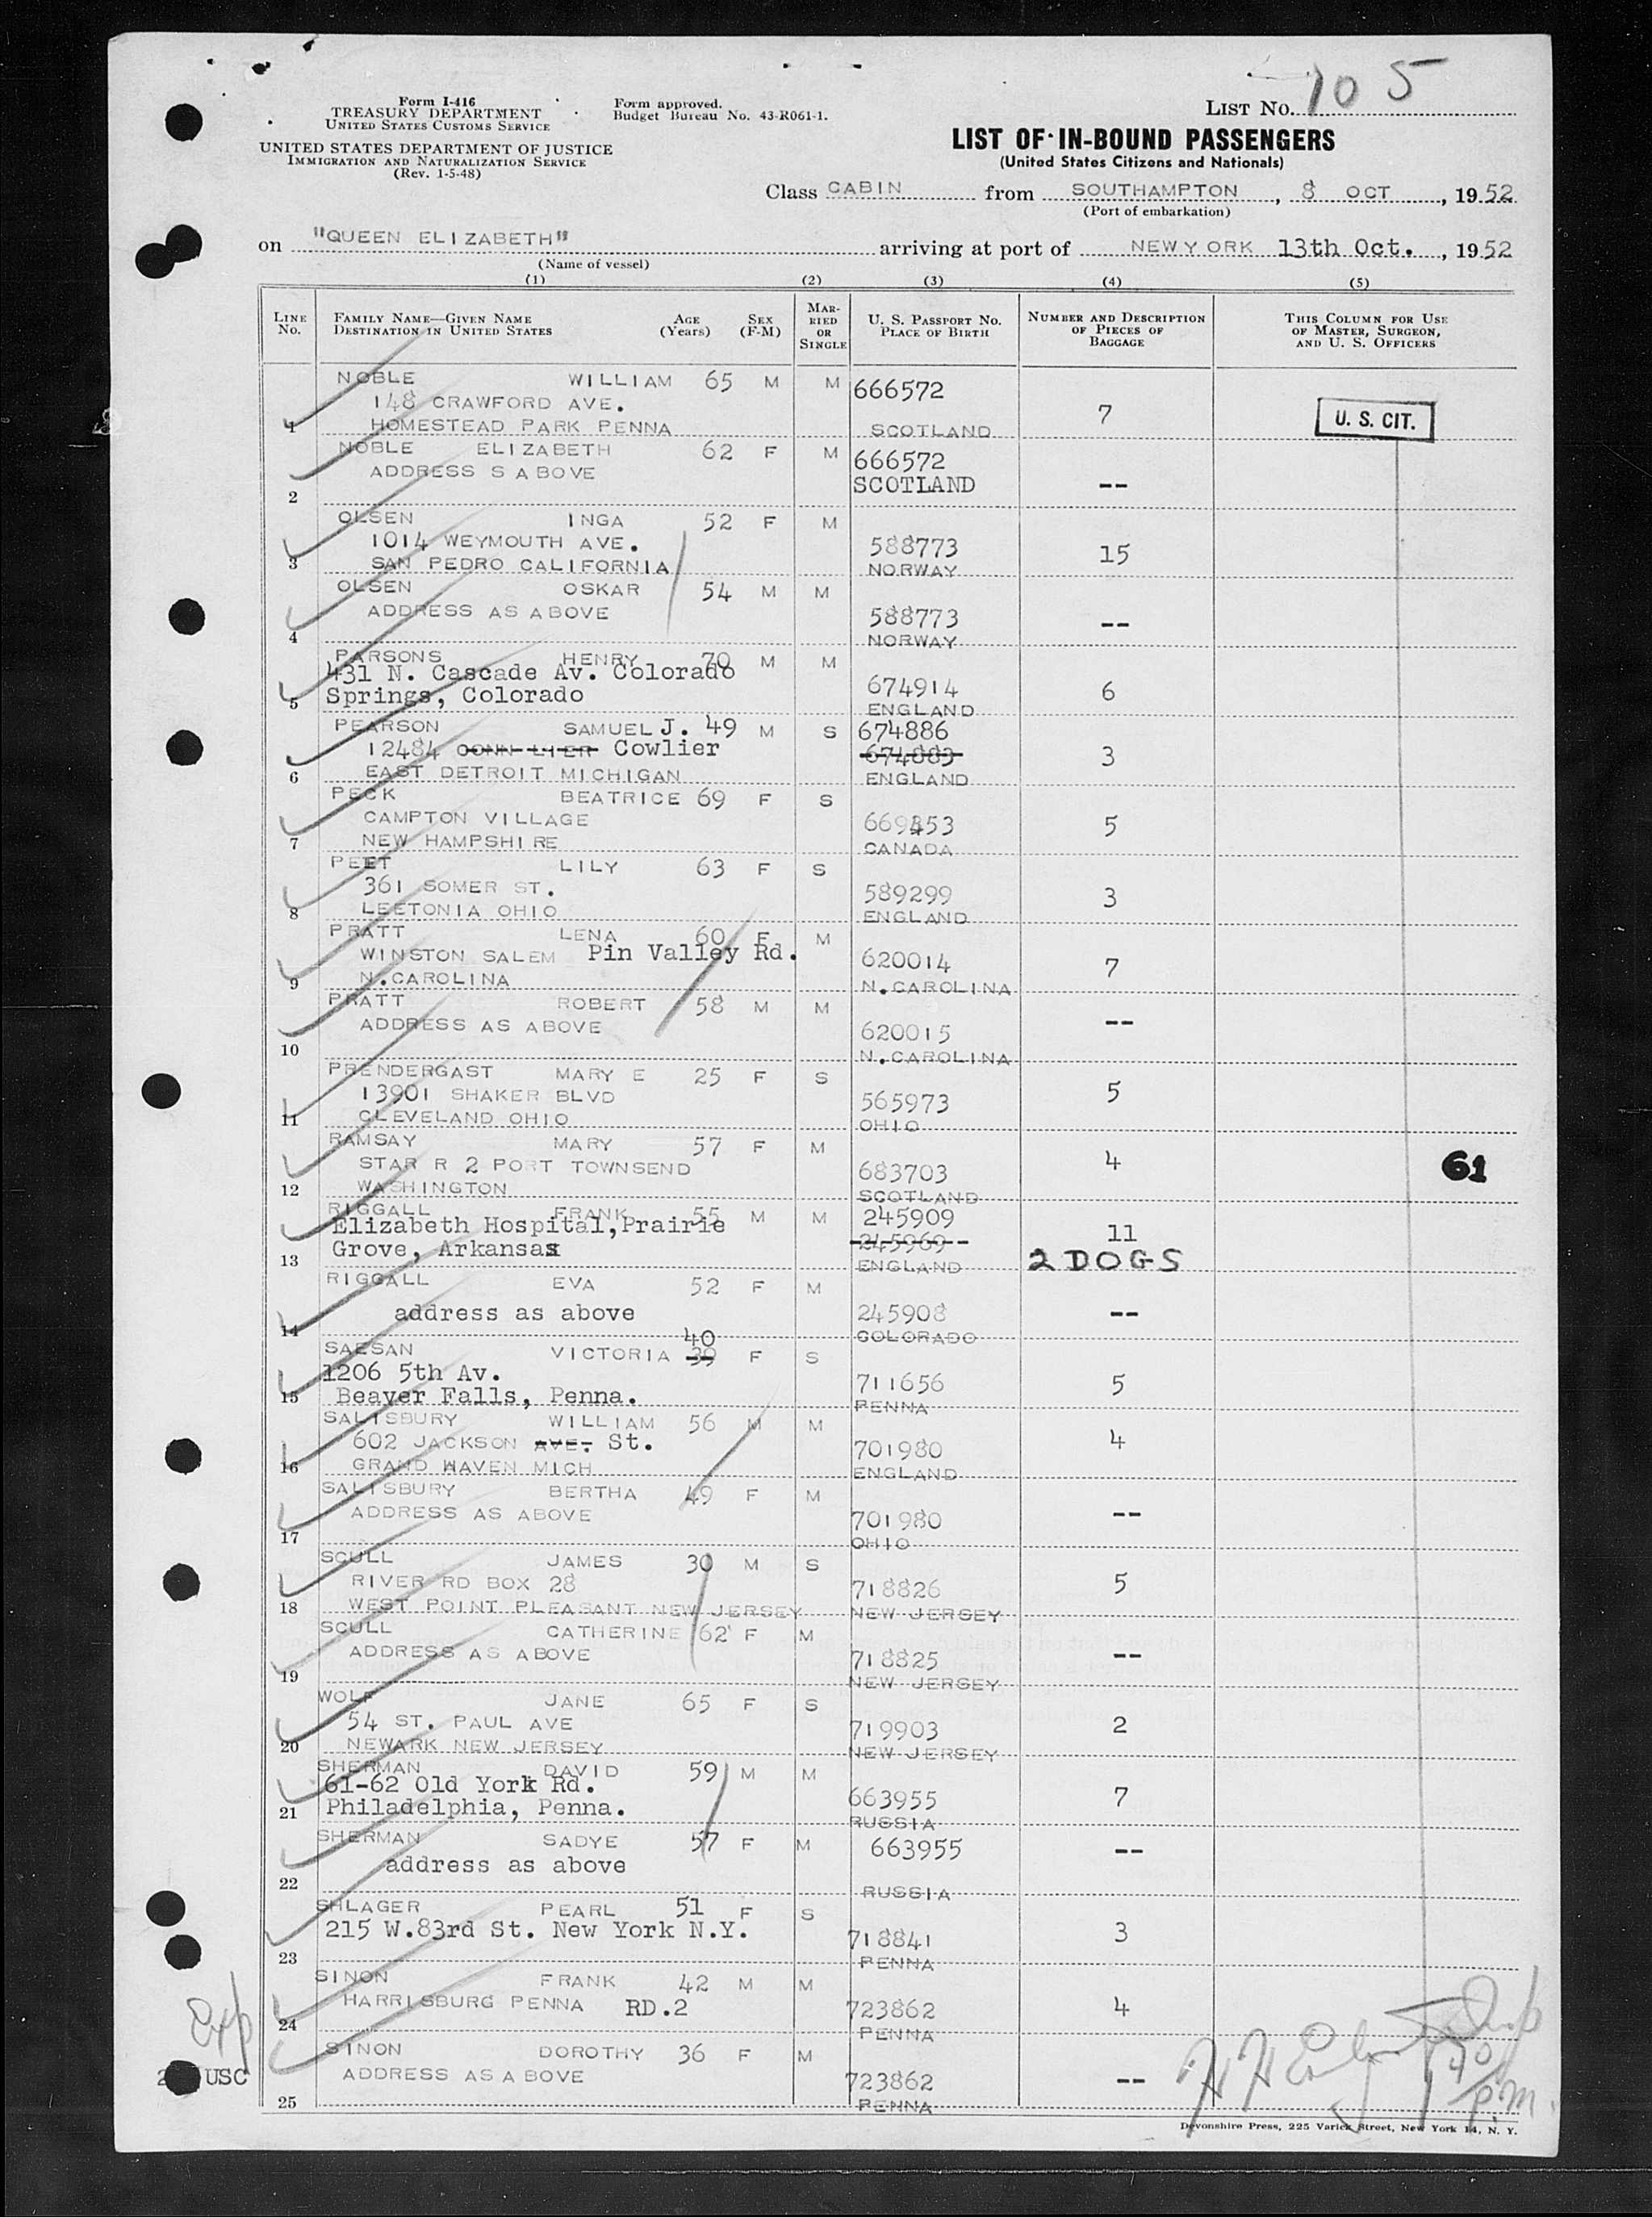 LIST NO. 105
Form I-416
TREASURY DEPARTMENT
UNITED STATES CUSTOMS SERVICE
UNITED STATES DEPARTMENT OF JUSTICE
IMMIGRATION AND NATURALIZATION SERVICE
(Rev. 1-5-48)
Form approved.
Budget Bureau No. 43-R061-1.
LIST OF IN-BOUND PASSENGERS
(United States Citizens and Nationals)
Class CABIN from SOUTHAMPTON, 8 OCT, 1952
(Port of embarkation)
on "QUEEN ELIZABETH" arriving at port of NEWYORK 13th Oct., 1952
(Name of vessel)
(1) (2) (3) (4) (5)
LINE No. FAMILY NAME—GIVEN NAME DESTINATION IN UNITED STATES AGE (Years) SEX (F-M) MARRIED OR SINGLE U. S. PASSPORT NO. PLACE OF BIRTH NUMBER AND DESCRIPTION OF PIECES OF BAGGAGE THIS COLUMN FOR USE OF MASTER, SURGEON, AND U. S. OFFICERS
NOBLE WILLIAM 65 M M 666572
148 CRAWFORD AVE. 7 U. S. CIT.
1 HOMESTEAD PARK PENNA SCOTLAND
NOBLE ELIZABETH 62 F M 666572
ADDRESS S ABOVE SCOTLAND --
2
OLSEN INGA 52 F M
1014 WEYMOUTH AVE. 588773 15
3 SAN PEDRO CALIFORNIA NORWAY
OLSEN OSKAR 54 M M
ADDRESS AS ABOVE 588773 --
4 NORWAY
PARSONS HENRY 70 M M
431 N. Cascade Av. Colorado 674914 6
5 Springs, Colorado ENGLAND
PEARSON SAMUEL J. 49 M S 674886
12484 CONN LIER Cowlier 674883 3
6 EAST DETROIT MICHIGAN ENGLAND
PECK BEATRICE 69 F S
CAMPTON VILLAGE 5
7 NEW HAMPSHIRE CANADA
PEET LILY 63 F S
361 SOMER ST. 589299 3
8 LEETONIA OHIO ENGLAND
PRATT LENA 60 F M
WINSTON SALEM Pin Valley Rd. 620014 7
9 N.CAROLINA N.CAROLINA
PRATT ROBERT 58 M M
ADDRESS AS ABOVE 620015 --
10 N.CAROLINA
PRENDERGAST MARY E 25 F S
13901 SHAKER BLVD 565973 5
11 CLEVELAND OHIO OHIO
RAMSAY MARY 57 F M
STAR R 2 PORT TOWNSEND 683703 4 61
12 WASHINGTON SCOTLAND
RIGGALL FRANK 55 M M 245909
Elizabeth Hospital,Prairie 245969 11
13 Grove, Arkansas ENGLAND 2 DOGS
RIGGALL EVA 52 F M
address as above 245908 --
14 COLORADO
40
SAESAN VICTORIA 39 F S
1206 5th Av. 711656 5
15 Beaver Falls, Penna. PENNA
SALTSBURY WILLIAM 56 M M
602 JACKSON AVE. St. 701980 4
16 GRAND HAVEN MICH ENGLAND
SALTSBURY BERTHA 49 F M
ADDRESS AS ABOVE 701980 --
17 OHIO
SCULL JAMES 30 M S
RIVER RD BOX 28 718826 5
18 WEST POINT PLEASANT NEW JERSEY NEW JERSEY
SCULL CATHERINE 62 F M
ADDRESS AS ABOVE 718825 --
19 NEW JERSEY
WOLF JANE 65 F S
54 ST. PAUL AVE 719903 2
20 NEWARK NEW JERSEY NEW JERSEY
SHERMAN DAVID 59 M M
61-62 Old York Rd. 663955 7
21 Philadelphia, Penna. RUSSIA
SHERMAN SADYE 57 F M 663955
address as above --
22 RUSSIA
SHLAGER PEARL 51 F S
215 W.83rd St. New York N.Y. 718841 3
23 PENNA
SINON FRANK 42 M M
HARRISBURG PENNA RD.2 723862 4
24 PENNA
SINON DOROTHY 36 F M
ADDRESS AS ABOVE 723862 --
25 PENNA
USC
p.m.
Devonshire Press, 225 Varick Street, New York 14, N. Y.